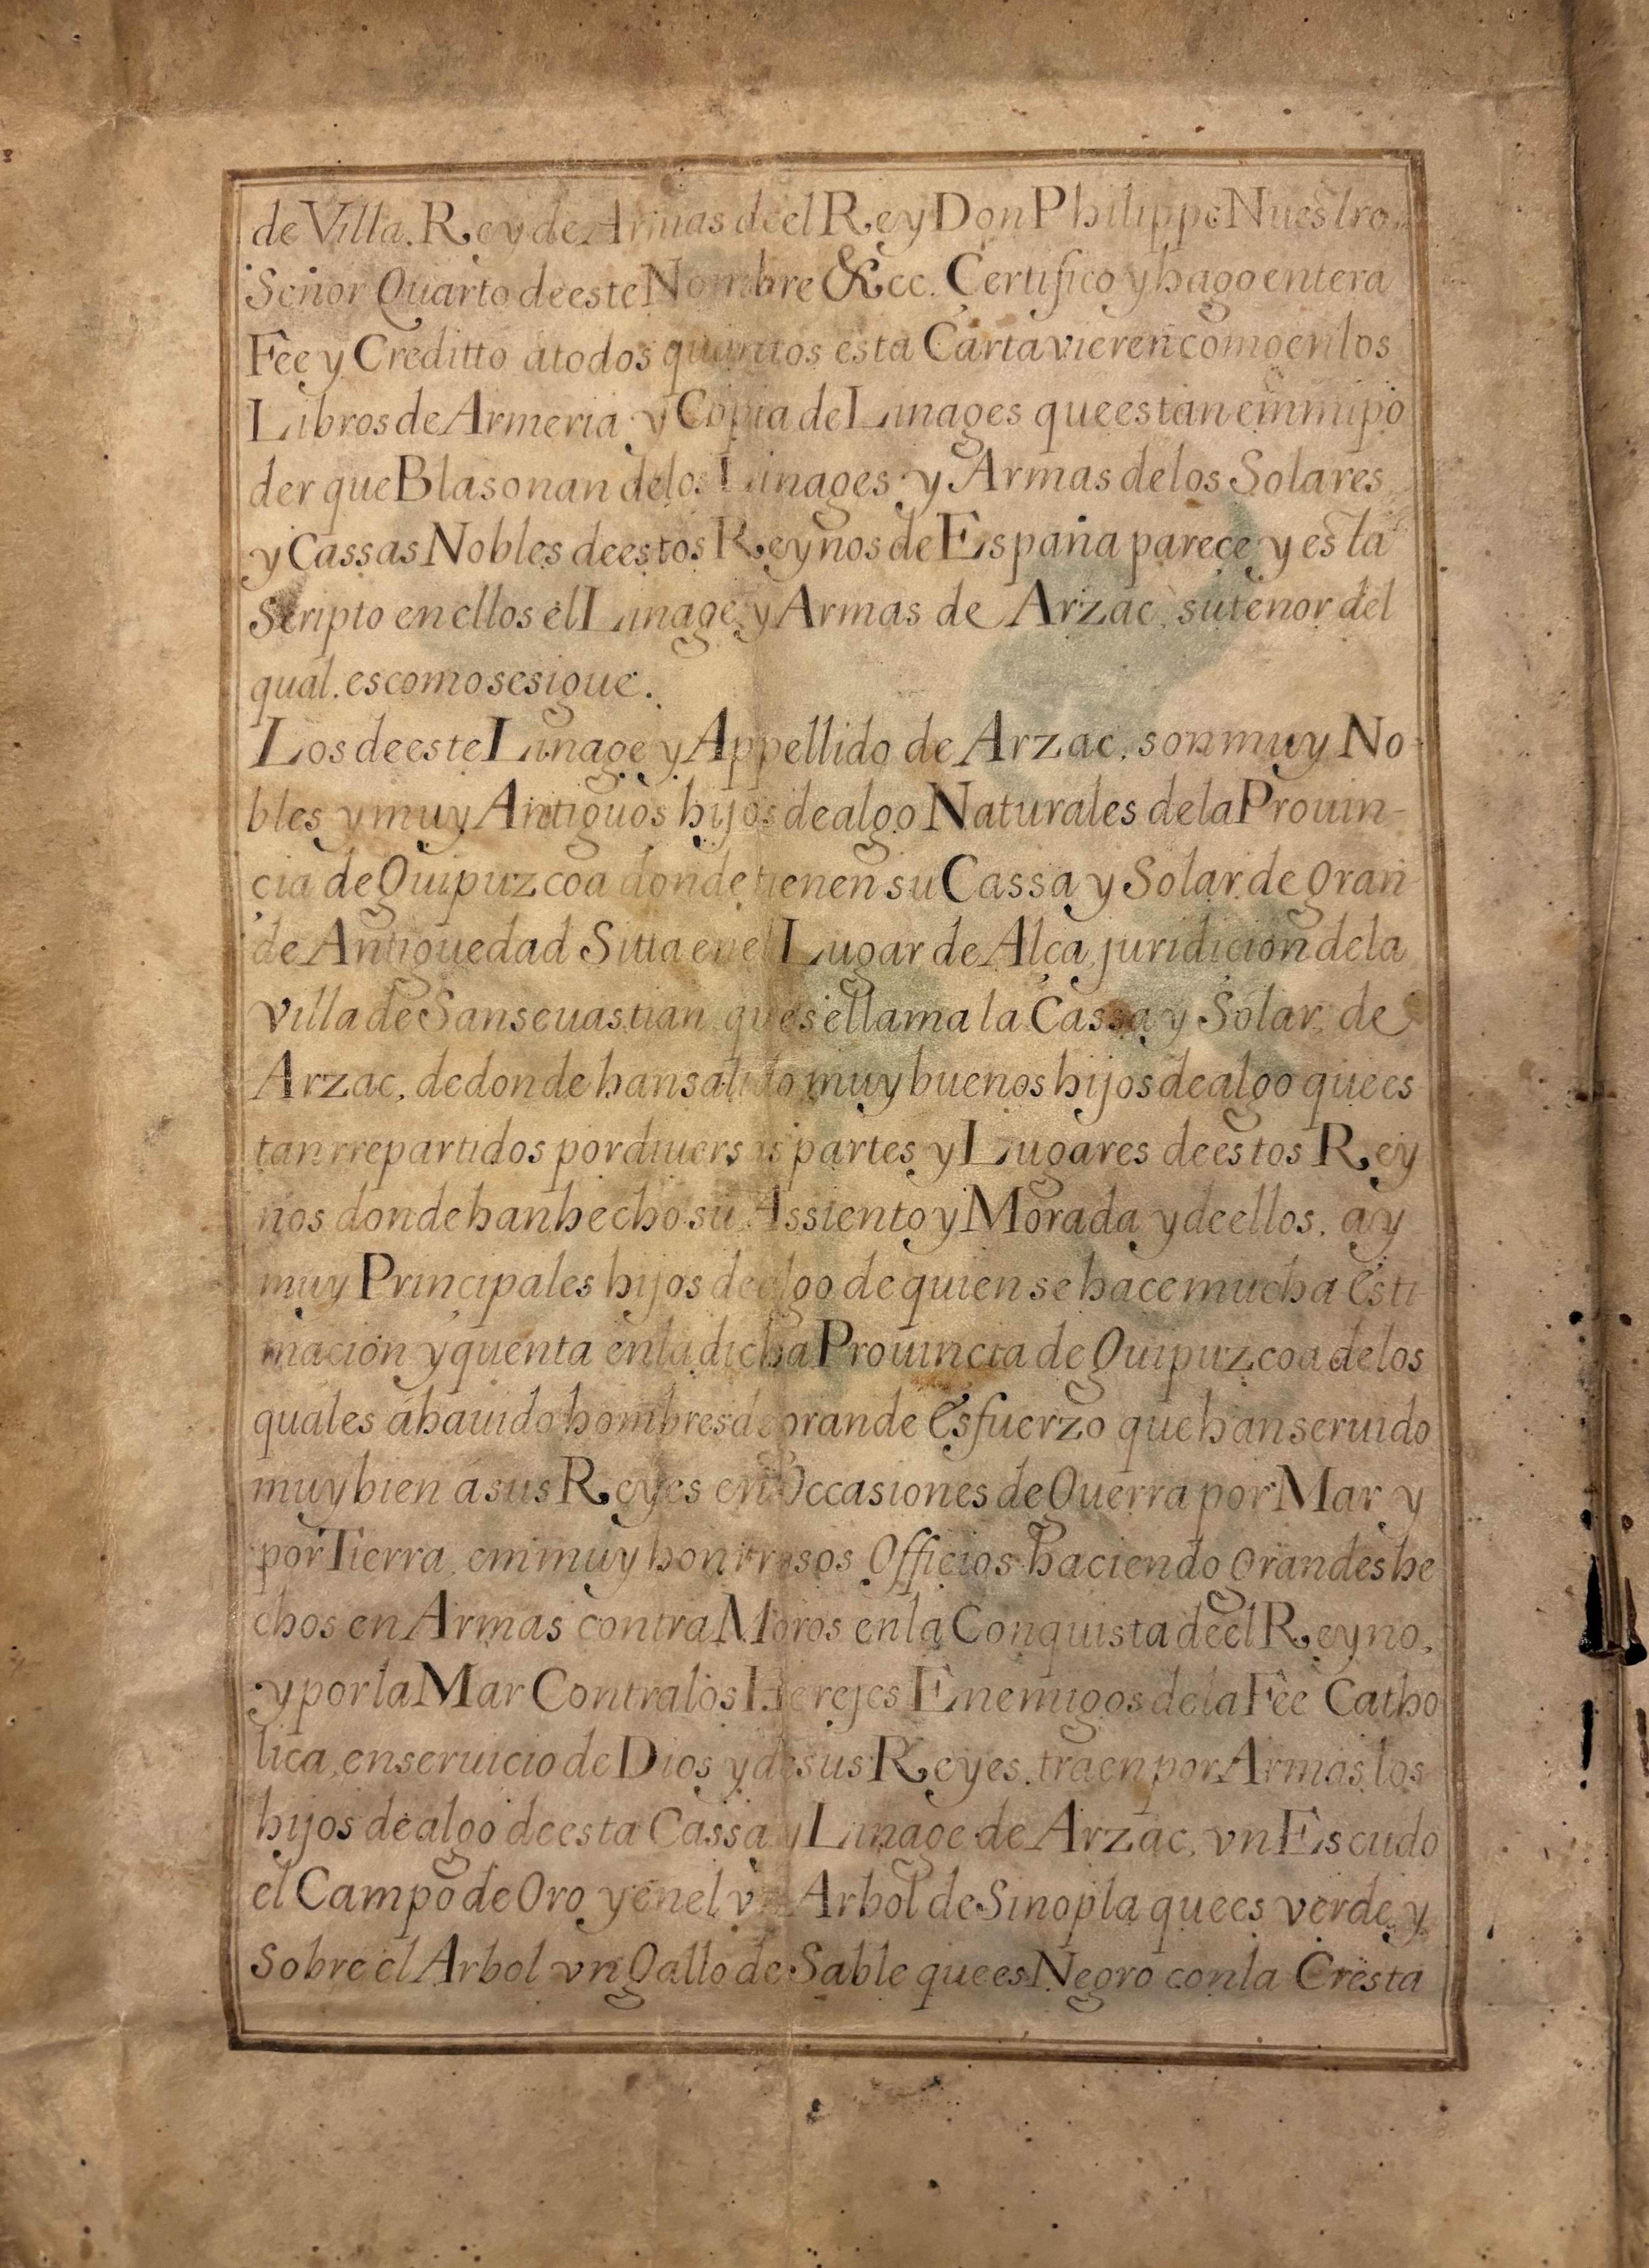 de Villa. Rey de Armas de el Rey Don Philippe Nuestro
Señor Quarto de este Nombre &cc. Certifico y hago entera
Fee y Creditto a todos quantos esta Carta vieren como en los
Libros de Armeria y Copia de Linages que estan em mi po
der que Blasonan de los Linages y Armas de los Solares
y Cassas Nobles de estos Reynos de España pareçe y esta
Scripto en ellos el Linage y Armas de Arzac, su tenor del
qual. es como se sigue.
Los de este Linage y Appellido de Arzac, son muy No
bles y muy Antiguos hijos dealgo Naturales de la Prouin-
çia de Guipuzcoa donde tienen su Cassa y Solar de gran
de Antiguedad Sitta en el Lugar de Alça, juridicion de la
Villa de San seuastian que se llama la Cassa y Solar, de
Arzac, de donde han salido muy buenos hijos dealgo que es
tan rrepartidos por diuersas partes y Lugares de estos Rey
nos donde han hecho su Assiento y Morada y de ellos, ay
muy Prinçipales hijos dealgo de quien se hace mucha Esti
macion y quenta en la dicha Prouincia de Guipuzcoa de los
quales a hauido hombres de grande Esfuerzo que han seruido
muy bien a sus Reyes en Occasiones de Guerra por Mar y
por Tierra, em muy honrrosos Officios haciendo grandes he
chos en Armas contra Moros en la Conquista de el Reyno,
y por la Mar Contra los Herejes Enemigos de la Fee Catho
lica, en seruicio de Dios y de sus Reyes. traen por Armas los
hijos dealgo de esta Cassa y Linage de Arzac, vn Escudo
el Campo de Oro y en el vn Arbol de Sinopla que es verde y
Sobre el Arbol vn Gallo de Sable que es Negro con la Cresta